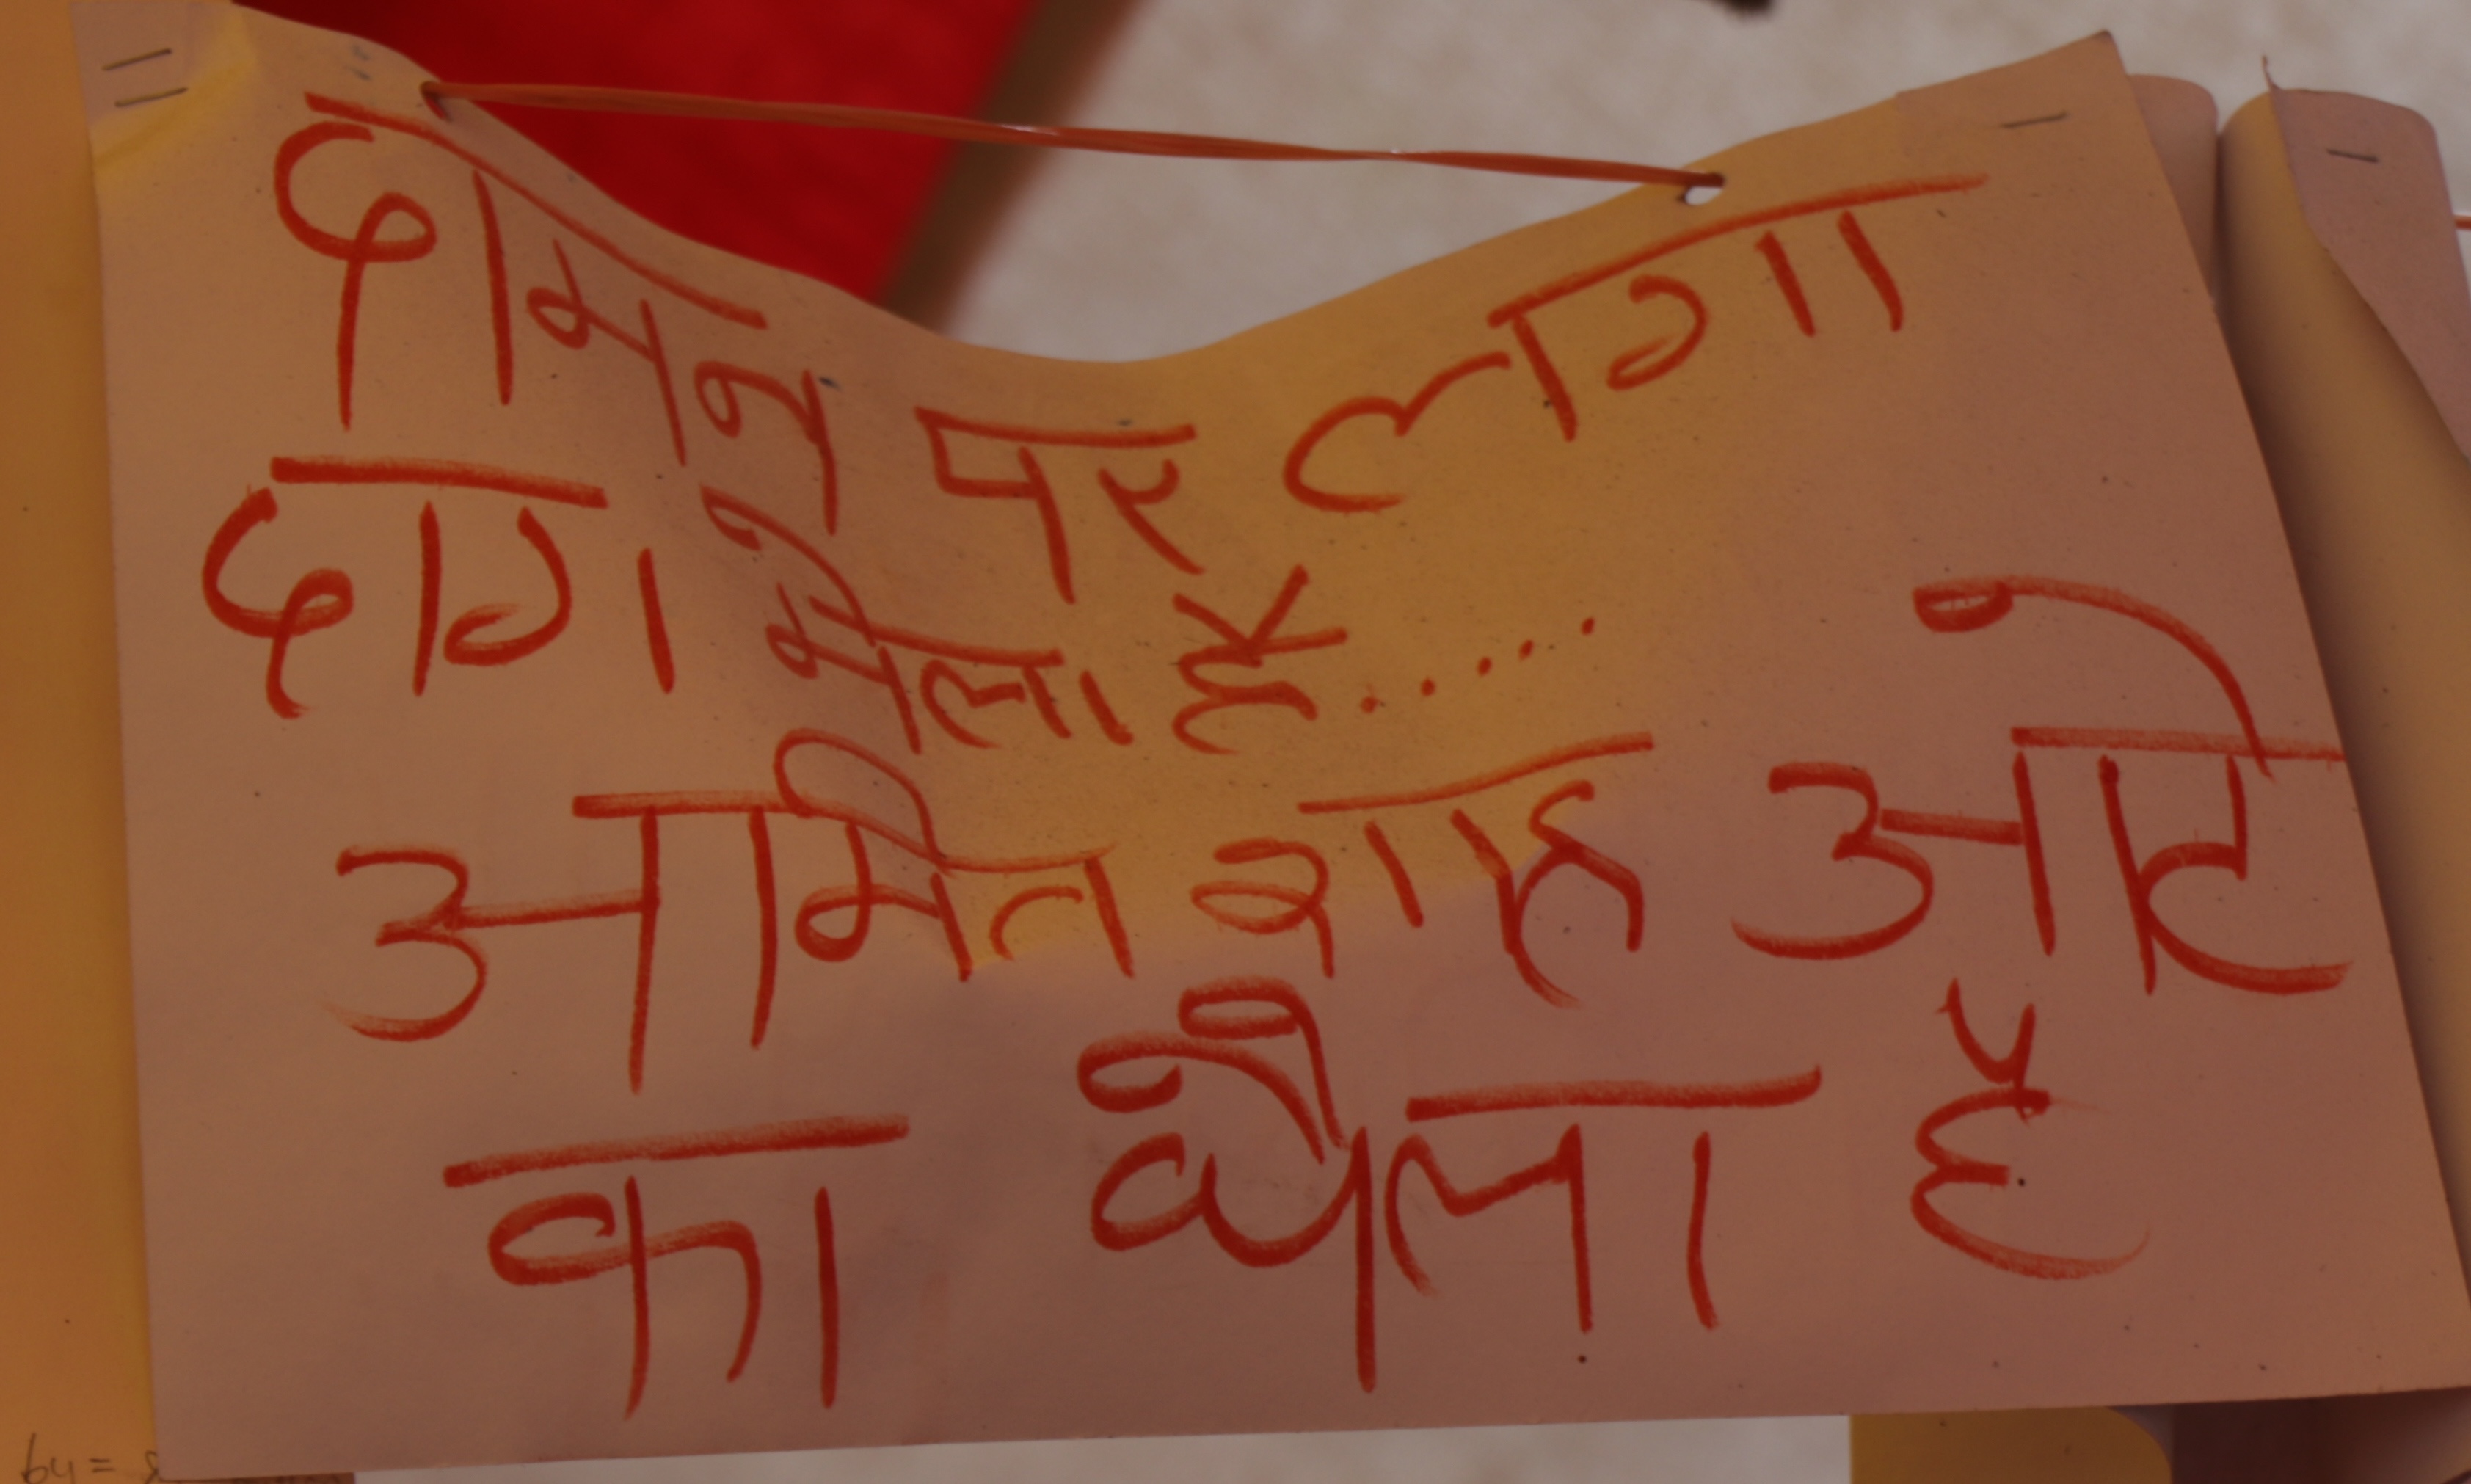 दामन पर लागा
दाग मेला है.....
आमित शाह आटे
का थैला है
by =